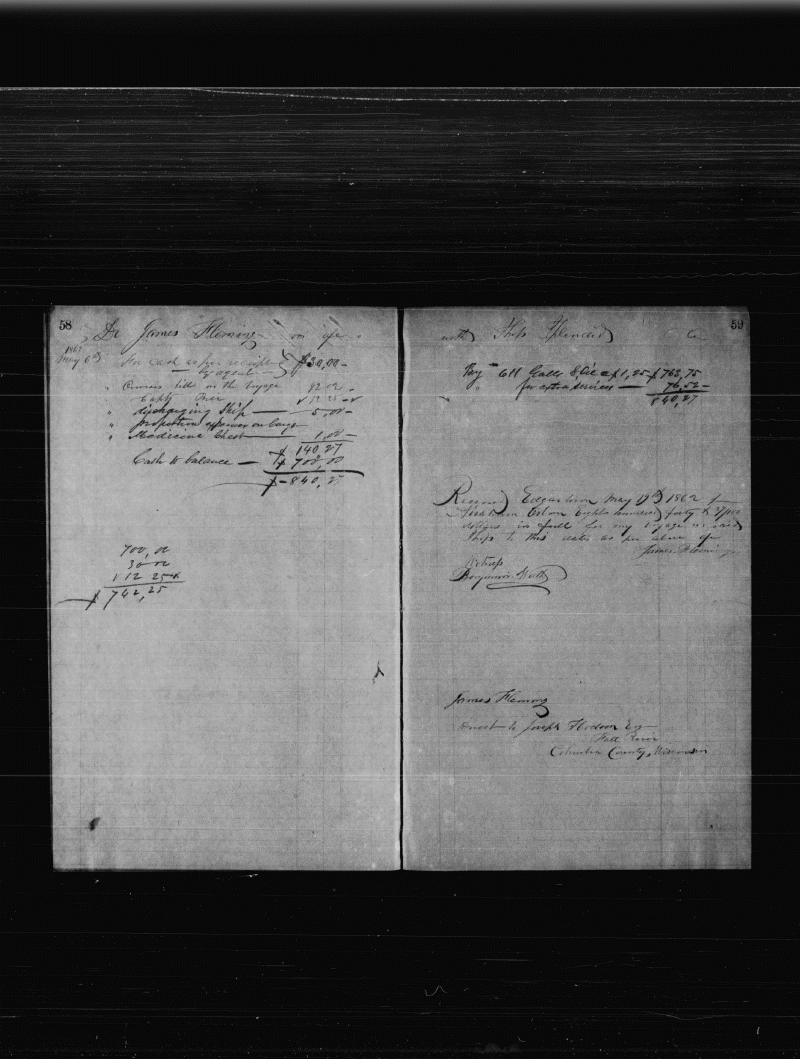 58
Dr James Fleming in a/c
1862
May 6th For Cash as per receipt $30,00
by agent
" Owners bill on the voyage
" discharging Ship 5,00
" proportion expenses on Cargo
" Medicine Chest 1,00
$ 140,27
Cash to balance $ 700,00
$ 840,27
700,00
30 00
112 25
$ 742,25
59
with Ship Splendid Cr
By 611 Galls S Oil a $1,25 $763,75
" for extra services 76,52
840,27
Received Edgartown May 19th 1862 of
Eight hundred forty & 27/100
dollars in full for my voyage in said
Ship to this date as per above a/c
James Fleming
Witness
Benjamin
James Fleming
Direct to Joseph Hodson Esq
Fall River
Columbia County, Wisconsin